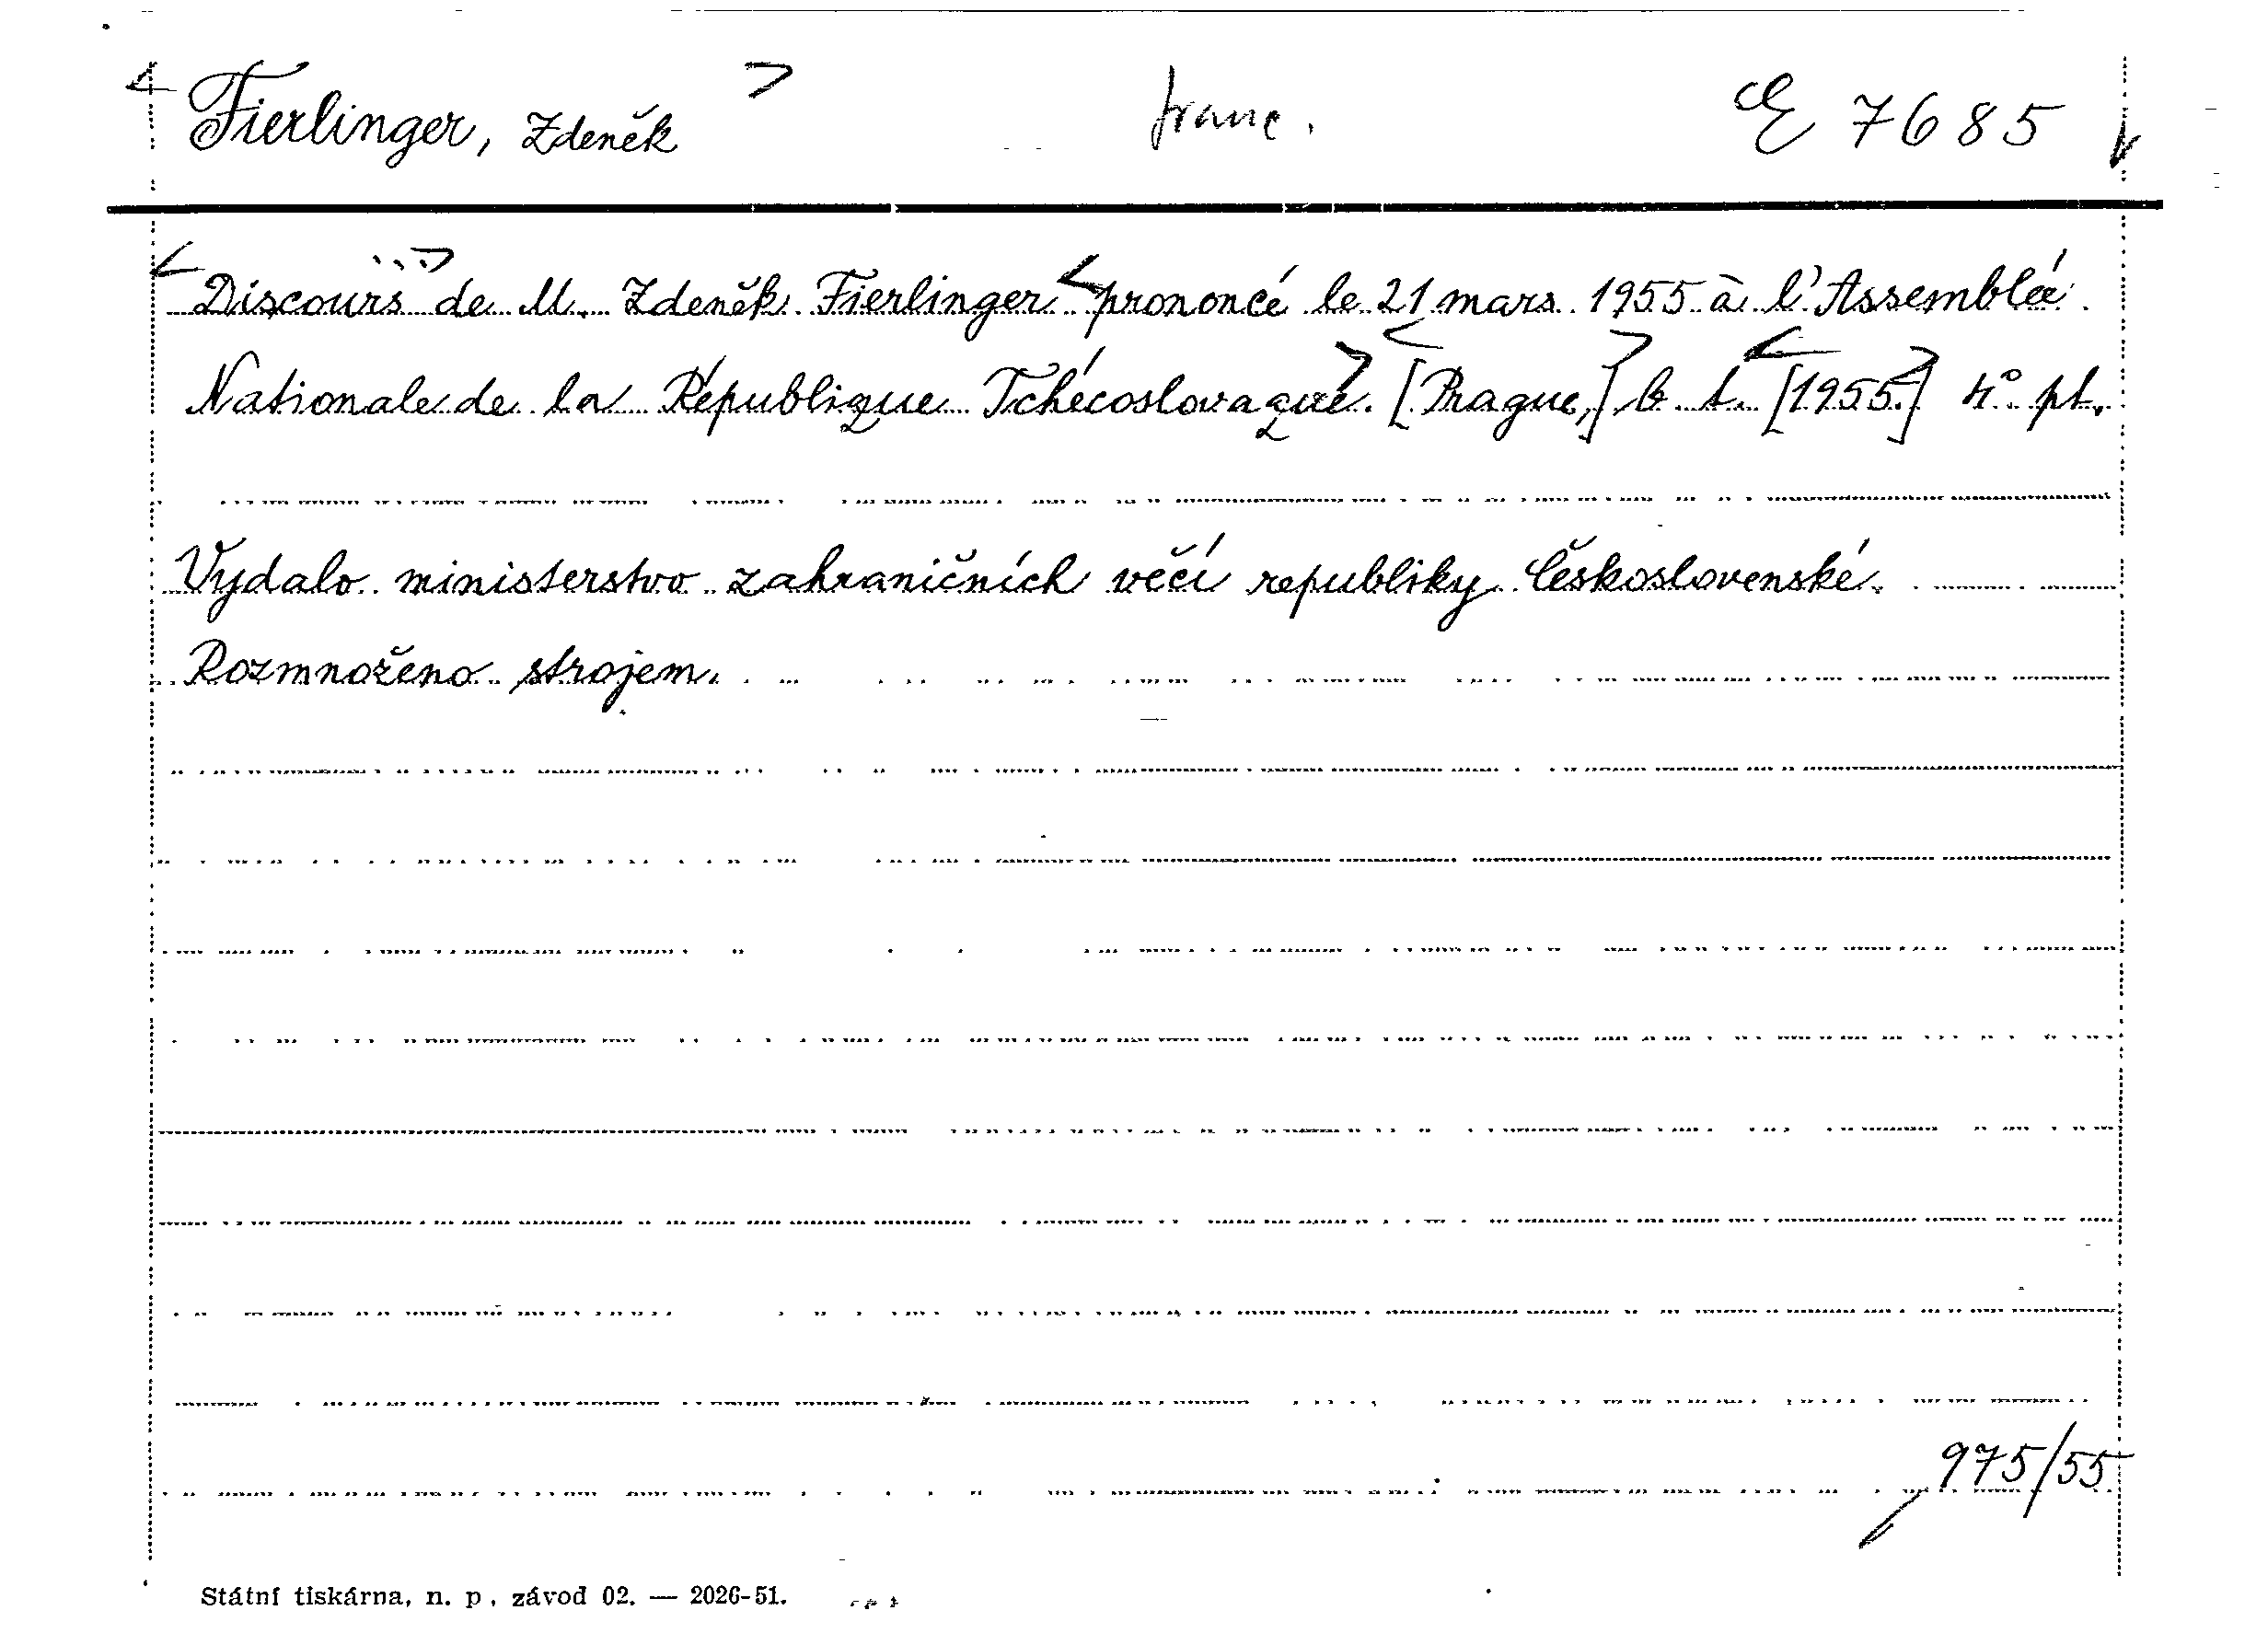 Fierlinger, Zdeněk franc. E 7685
Discours de M. Zdeněk Fierlinger prononcé le 21 mars 1955 à l'Assemblée
Nationale de la République Tchécoslovaque. [Prague,] b. t. [1955.] 4° pt.
Vydalo ministerstvo zahraničních věcí republiky Československé.
Rozmnoženo strojem.
975/55
Státní tiskárna, n. p., závod 02. — 2026-51.